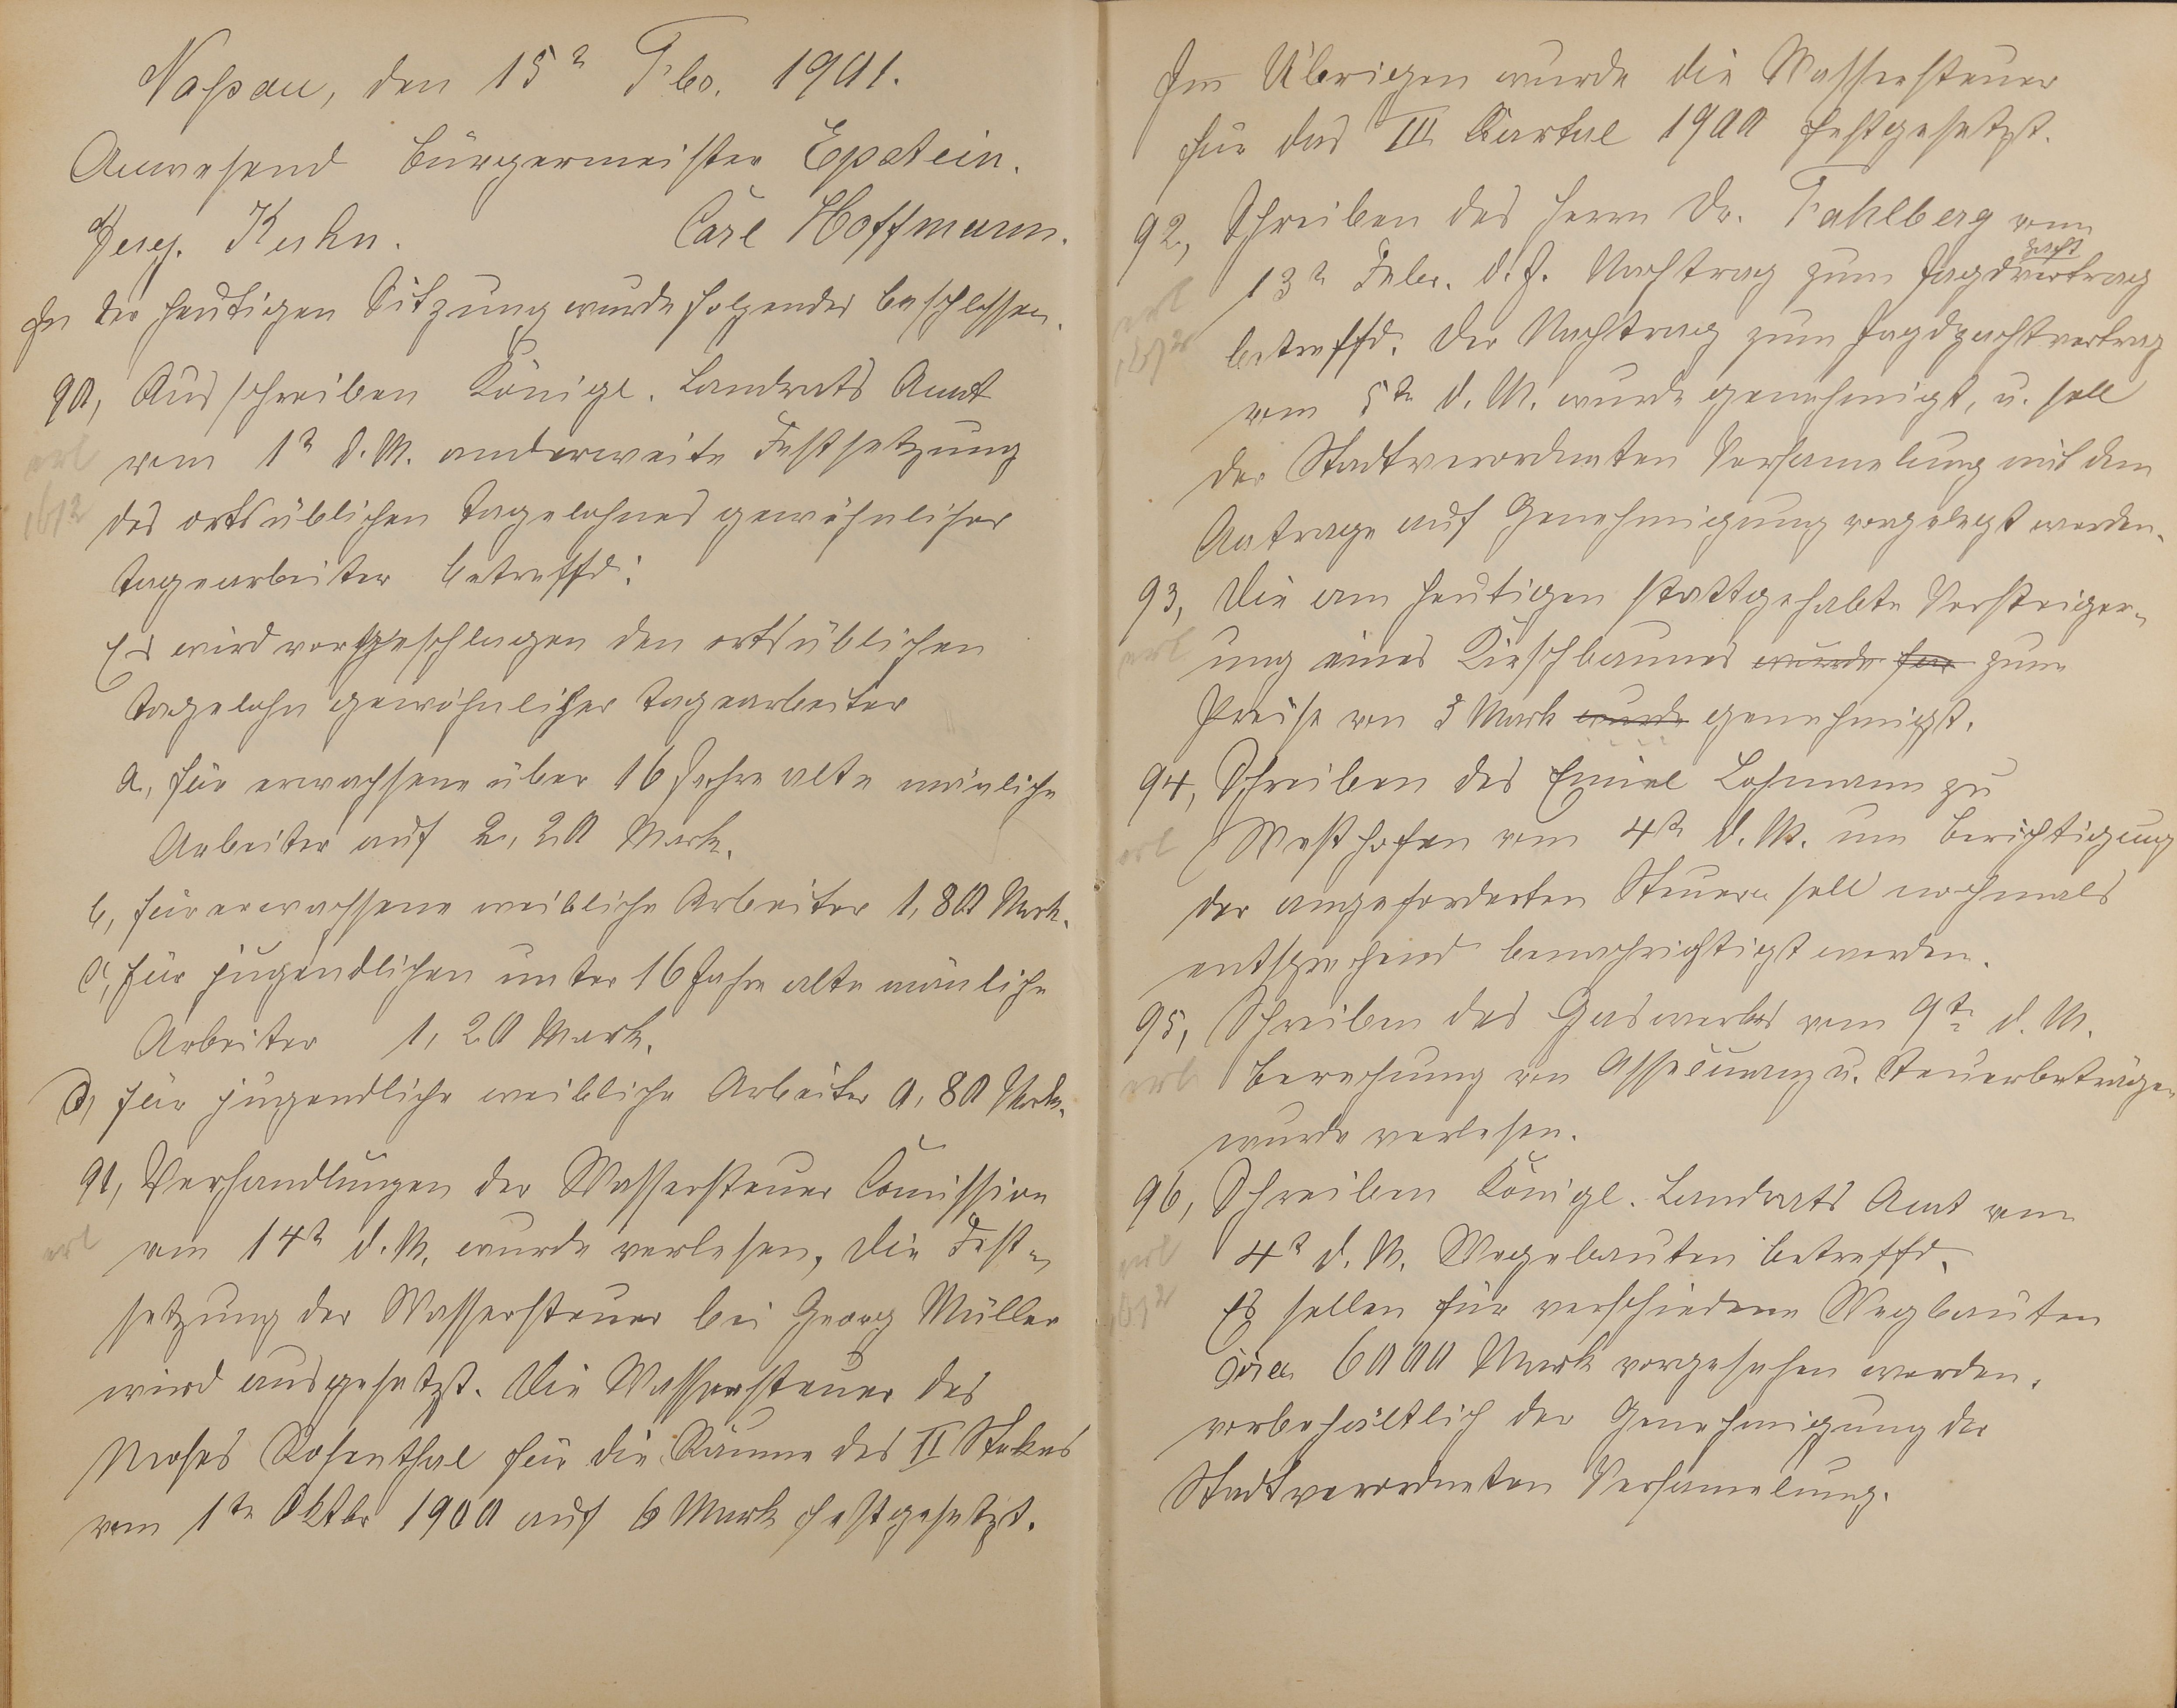 Nassau, den 15t Feb. 1901.
Anwesend Bürgermeister Epstein.
Kuhn. Carl Hoffmann.
In der heutigen Sitzung wurde folgendes beschlossen.
90, Ausschreiben Königl. Landrats Amt
erl vom 1t d. M. anderweite Festsetzung
16/2 des ortsüblichen Tagelohnes gewöhnlicher
Tagearbeiter betreffd:
Es wird vorgeschlagen den ortsüblichen
Tagelohn gewöhnlicher Tagearbeiter
a, für erwachsene über 16 Jahre alte mänliche
Arbeiter auf 2,20 Mark.
b, für erwachsene weibliche Arbeiter 1,80 Mark.
c, für jugendlichen unter 16 Jahre alte mänliche
Arbeiter 1,20 Mark.
d, für jugendliche weibliche Arbeiter 0,80 Mark.
91, Verhandlungen der Wassersteuer Comission
erl vom 14t d. M. wurde verlesen, die Fest-
setzung der Wassersteuer bei Georg Müller
wird ausgesetzt. Die Wassersteuer des
Moses Rosenthal für die Räume des II Stokes
vom 1te Oktbr 1900 auf 6 Mark festgesetzt.
Im Übrigen wurde die Wassersteuer
für das III Quartal 1900 festgesetzt.
92, Schreiben des Herrn Dr. Fahlberg vom
pacht
erl 13t Febr. d. J. Nachtrag zum Jagdvertrag
16/2 betreffd. Der Nachtrag zum Jagdpachtvertrag
vom 5te d. M. wurde genehmigt, u. soll
der Stadtverordneten Versamelung mit dem
Antrage auf Genehmigung vorgelegt werden.
93, Die am heutigen stattgehabte Versteiger-
erl ung eines Kirschbaumes wurde für zum
Preise von 3 Mark wurde genehmigt.
94, Schreiben des Emiel Lohmann zu
erl Westhofen vom 4te d. M. um Berichtigung
der angeforderten Steuern soll nochmals
entsprechend benachrichtigt werden.
95, Schreiben des Gaswerkes vom 9te d. M.
erl Berechung von u. Steuerbeträgen
wurde verlesen.
96, Schreiben Königl. Landrats Amt vom
erl 4t d. M. Wegebauten betreffd.
16/2 Es sollen für verschiedene Wegbauten
circa 6000 Mark vorgesehen werden,
vorbehältlich der Genehmigung der
Stadtverordneten Versamelung.